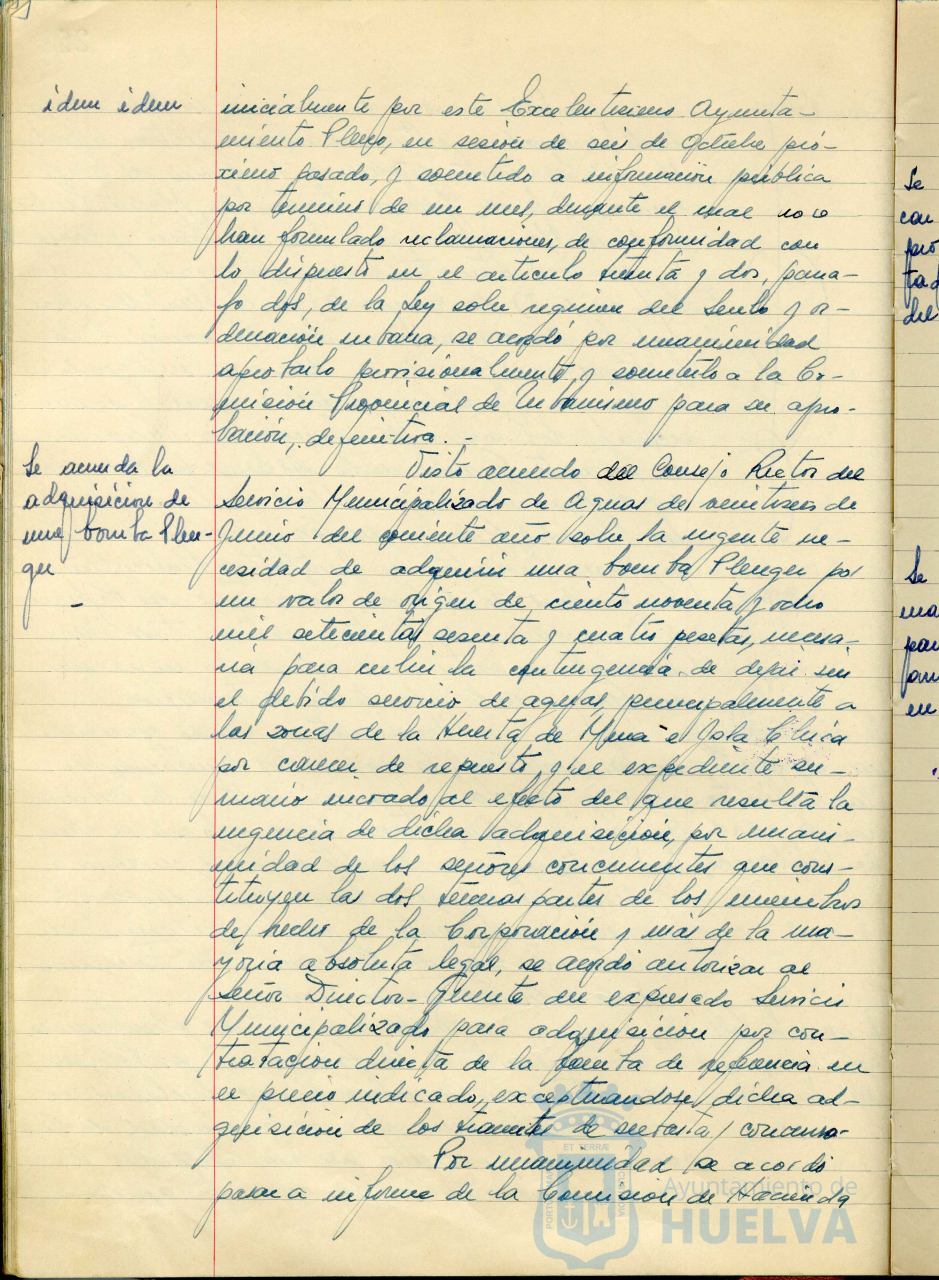 idem idem
inicialmente por este Excelentisimo Ayunta-
miento Pleno, en sesión de seis de Octubre pró-
ximo pasado, y sometido a información pública
por termino de un mes, durante el cual no se
han formulado reclamaciones, de conformidad con
lo dispuesto en el articulo treinta y dos, parra-
fo dos, de la Ley sobre regimen del Suelo y or-
denación urbana, se acordó por unanimidad
aprobarlo provisionalmente, y someterlo a la Co-
misión Provincial de Urbanismo para su apro-
bación, definitiva. -
Se acuerda la
adquisicion de
una bomba Plen-
ger
-
Visto acuerdo del Consejo Rector del
Servicio Municipalizado de Aguas de veintiseis de
Junio del corriente año sobre la urgente ne-
cesidad de adquirir una bomba Plenger por
un valor de origen de, ciento noventa y ocho
mil setecientas sesenta y cuatro pesetas, necesa-
ria para cubrir la contingencia de dejar sin
el debido servicio de aguas, principalmente a
las zonas de la Huerta de Mena e Isla Chica
por carecer de repuesto, y el expediente su-
mario incoado al efecto del que resulta la
urgencia de dicha adquisición, por unani-
midad de los señores concurrentes que cons-
tituyen las dos terceras partes de los miembros
de hecho de la Corporación y más de la ma-
yoria absoluta legal, se acordó autorizar al
Señor Director-Gerente del expresado Servicio
Municipalizado para adquisición por con-
tratación directa de la bomba de referencia en
el precio indicado, exceptuandose dicha ad-
quisición de los tramites de subasta / concurso.
Por unanimidad se acordó
pasar a informe de la Comisión de Hacienda
Se
con
pro
tad
del
Se
ma
par
en
Ayuntamiento de
HUELVA